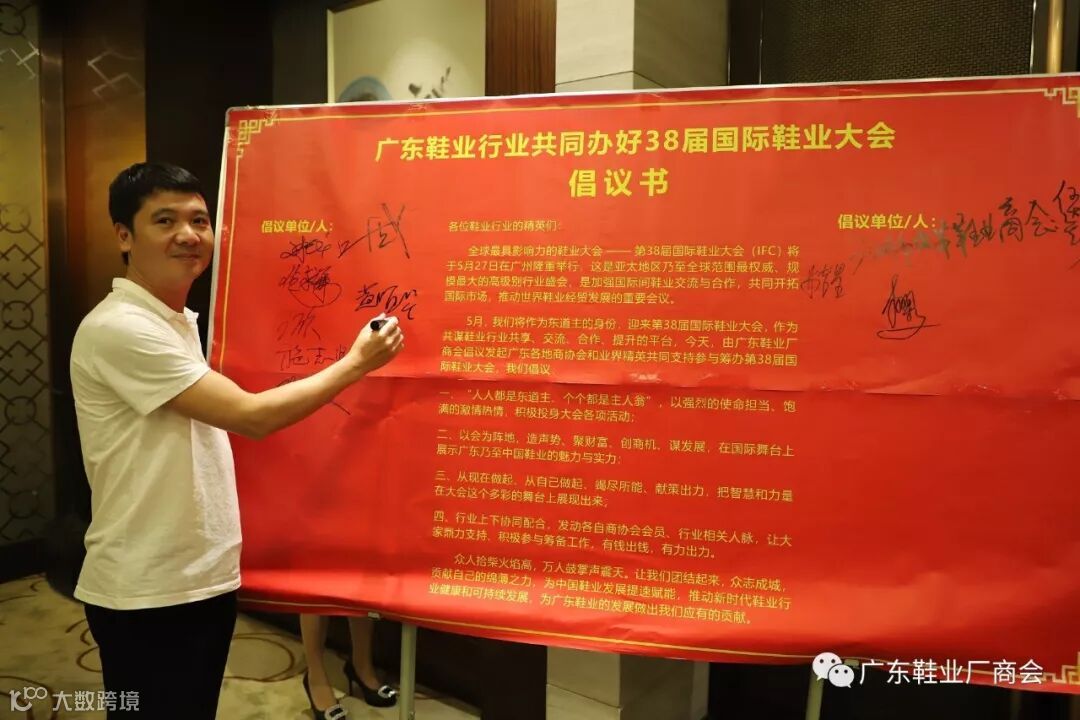 广东鞋业行业共同办好38届国际鞋业大会
倡议书
倡议单位/人：
各位鞋业行业的精英们：
全球最具影响力的鞋业大会 —— 第38届国际鞋业大会（IFC）将
于5月27日在广州隆重举行，这是亚太地区乃至全球范围最权威、规
模最大的高级别行业盛会，是加强国际间鞋业交流与合作，共同开拓
国际市场，推动世界鞋业经贸发展的重要会议。
5月，我们将作为东道主的身份，迎来第38届国际鞋业大会，作为
共谋鞋业行业共享、交流、合作、提升的平台，今天，由广东鞋业厂
商会倡议发起广东各地商协会和业界精英共同支持参与筹办第38届国
际鞋业大会，我们倡议
一、“人人都是东道主，个个都是主人翁”，以强烈的使命担当、饱
满的激情热情，积极投身大会各项活动；
二、以会为阵地，造声势、聚财富、创商机、谋发展，在国际舞台上
展示广东乃至中国鞋业的魅力与实力；
三、从现在做起，从自己做起，竭尽所能、献策出力，把智慧和力量
在大会这个多彩的舞台上展现出来；
四、行业上下协同配合，发动各自商协会会员、行业相关人脉，让大
家鼎力支持、积极参与筹备工作，有钱出钱，有力出力。
众人拾柴火焰高，万人鼓掌声震天。让我们团结起来，众志成城，
贡献自己的绵薄之力，为中国鞋业发展提速赋能，推动新时代鞋业行
业健康和可持续发展，为广东鞋业的发展做出我们应有的贡献。
倡议单位/人：
鞋业商会
广东鞋业厂商会
大数跨境